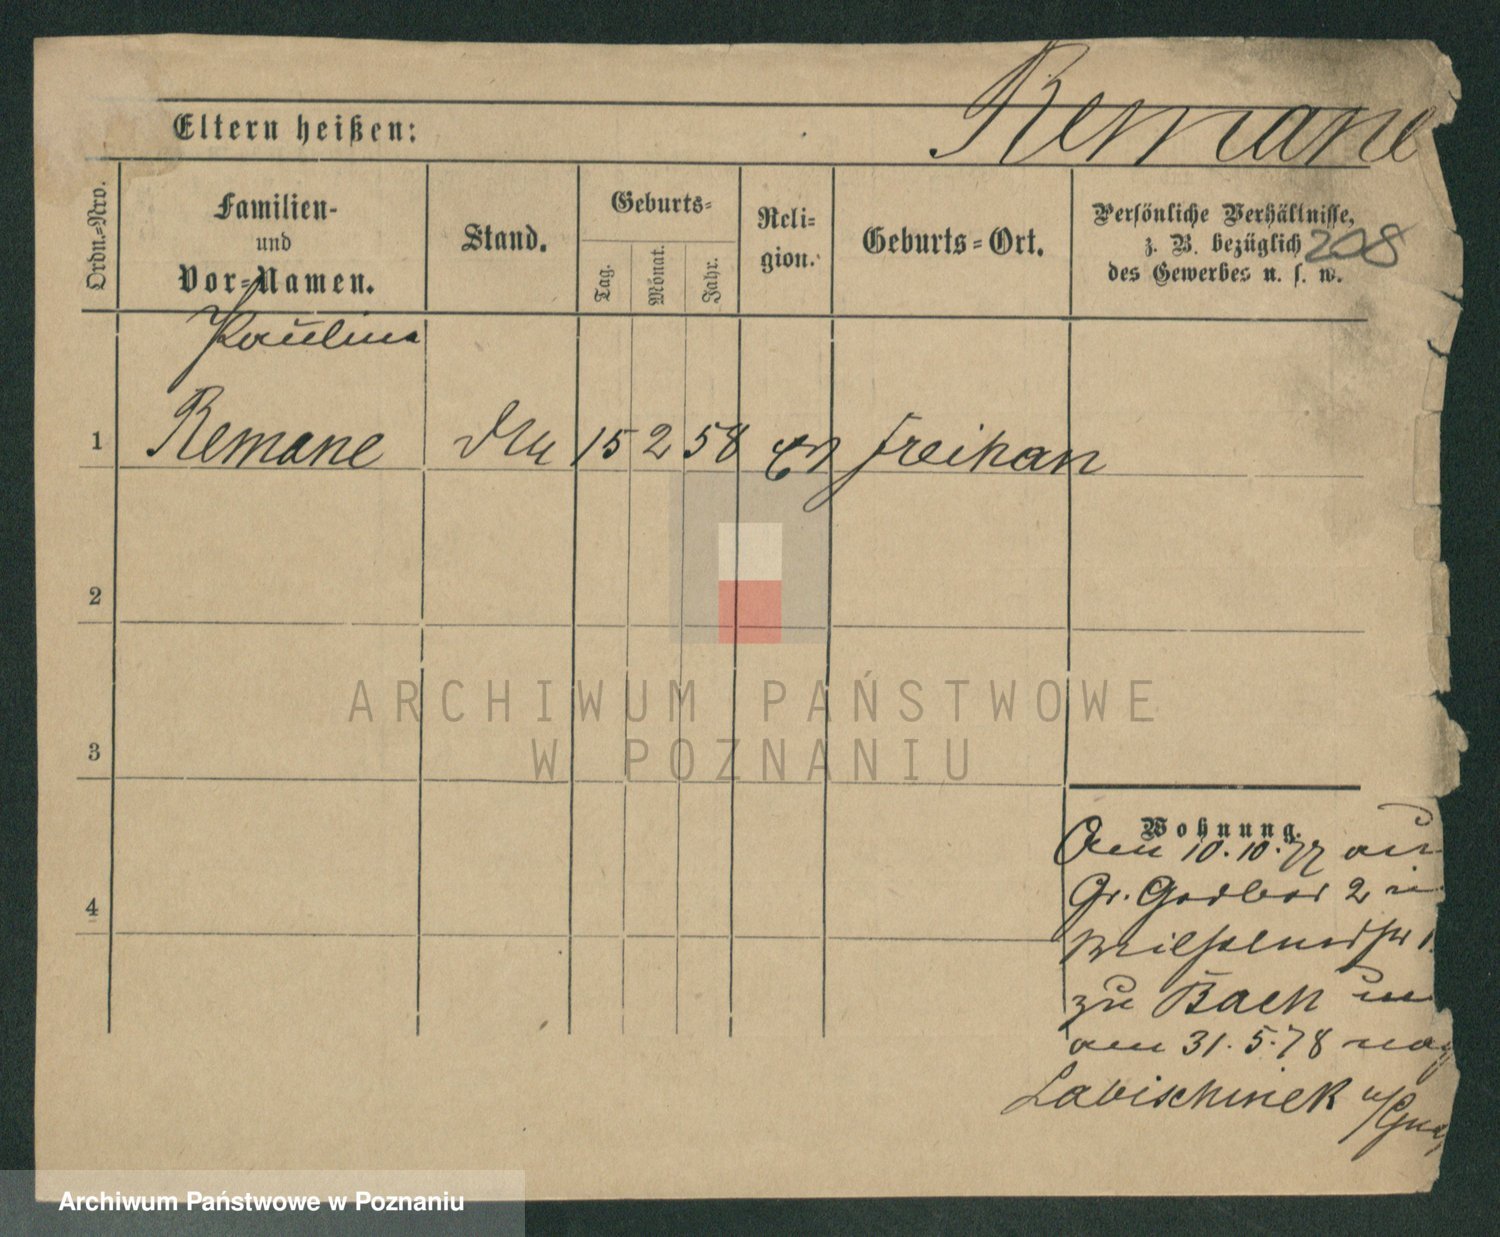 Remane
Eltern heißen:
Ordn.-Nro.
Familien-
und
Vor-Namen.
Stand.
Geburts-
Tag.
Monat.
Jahr.
Reli-
gion.
Geburts-Ort.
Persönliche Verhältnisse,
z. B. bezüglich
des Gewerbes u. s. w.
208
Pauline
1 Remane 15 2 58 Ev Freihan
2
3
4
Wohnung.
Am 10.10.77
Gr. 2
zu Bach
am 31.5.78
Labischinek
ARCHIWUM PAŃSTWOWE
W POZNANIU
Archiwum Państwowe w Poznaniu